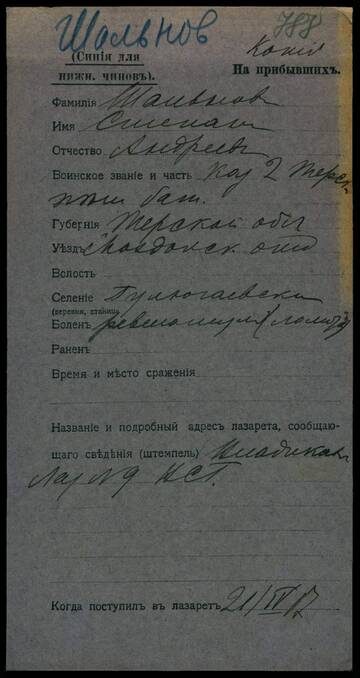 Шальнов
788
(Синія для
нижн. чиновъ).
Копія
На прибывшихъ.
Фамилія Шальнов
Имя Степан
Отчество Андреев
Воинское званіе и часть Каз 2 Терск
пласт бат.
Губернія Терской обл
Уѣздъ Моздокск отд
Волость
Селеніе Галюгаевска
(деревня, станица)
Боленъ ревматизм
Раненъ
Время и мѣсто сраженія
Названіе и подробный адресъ лазарета, сообщаю-
щаго свѣдѣнія (штемпель) Владикав
Лаз № 9 ВСГ.
Когда поступилъ въ лазаретъ 21/IV 17